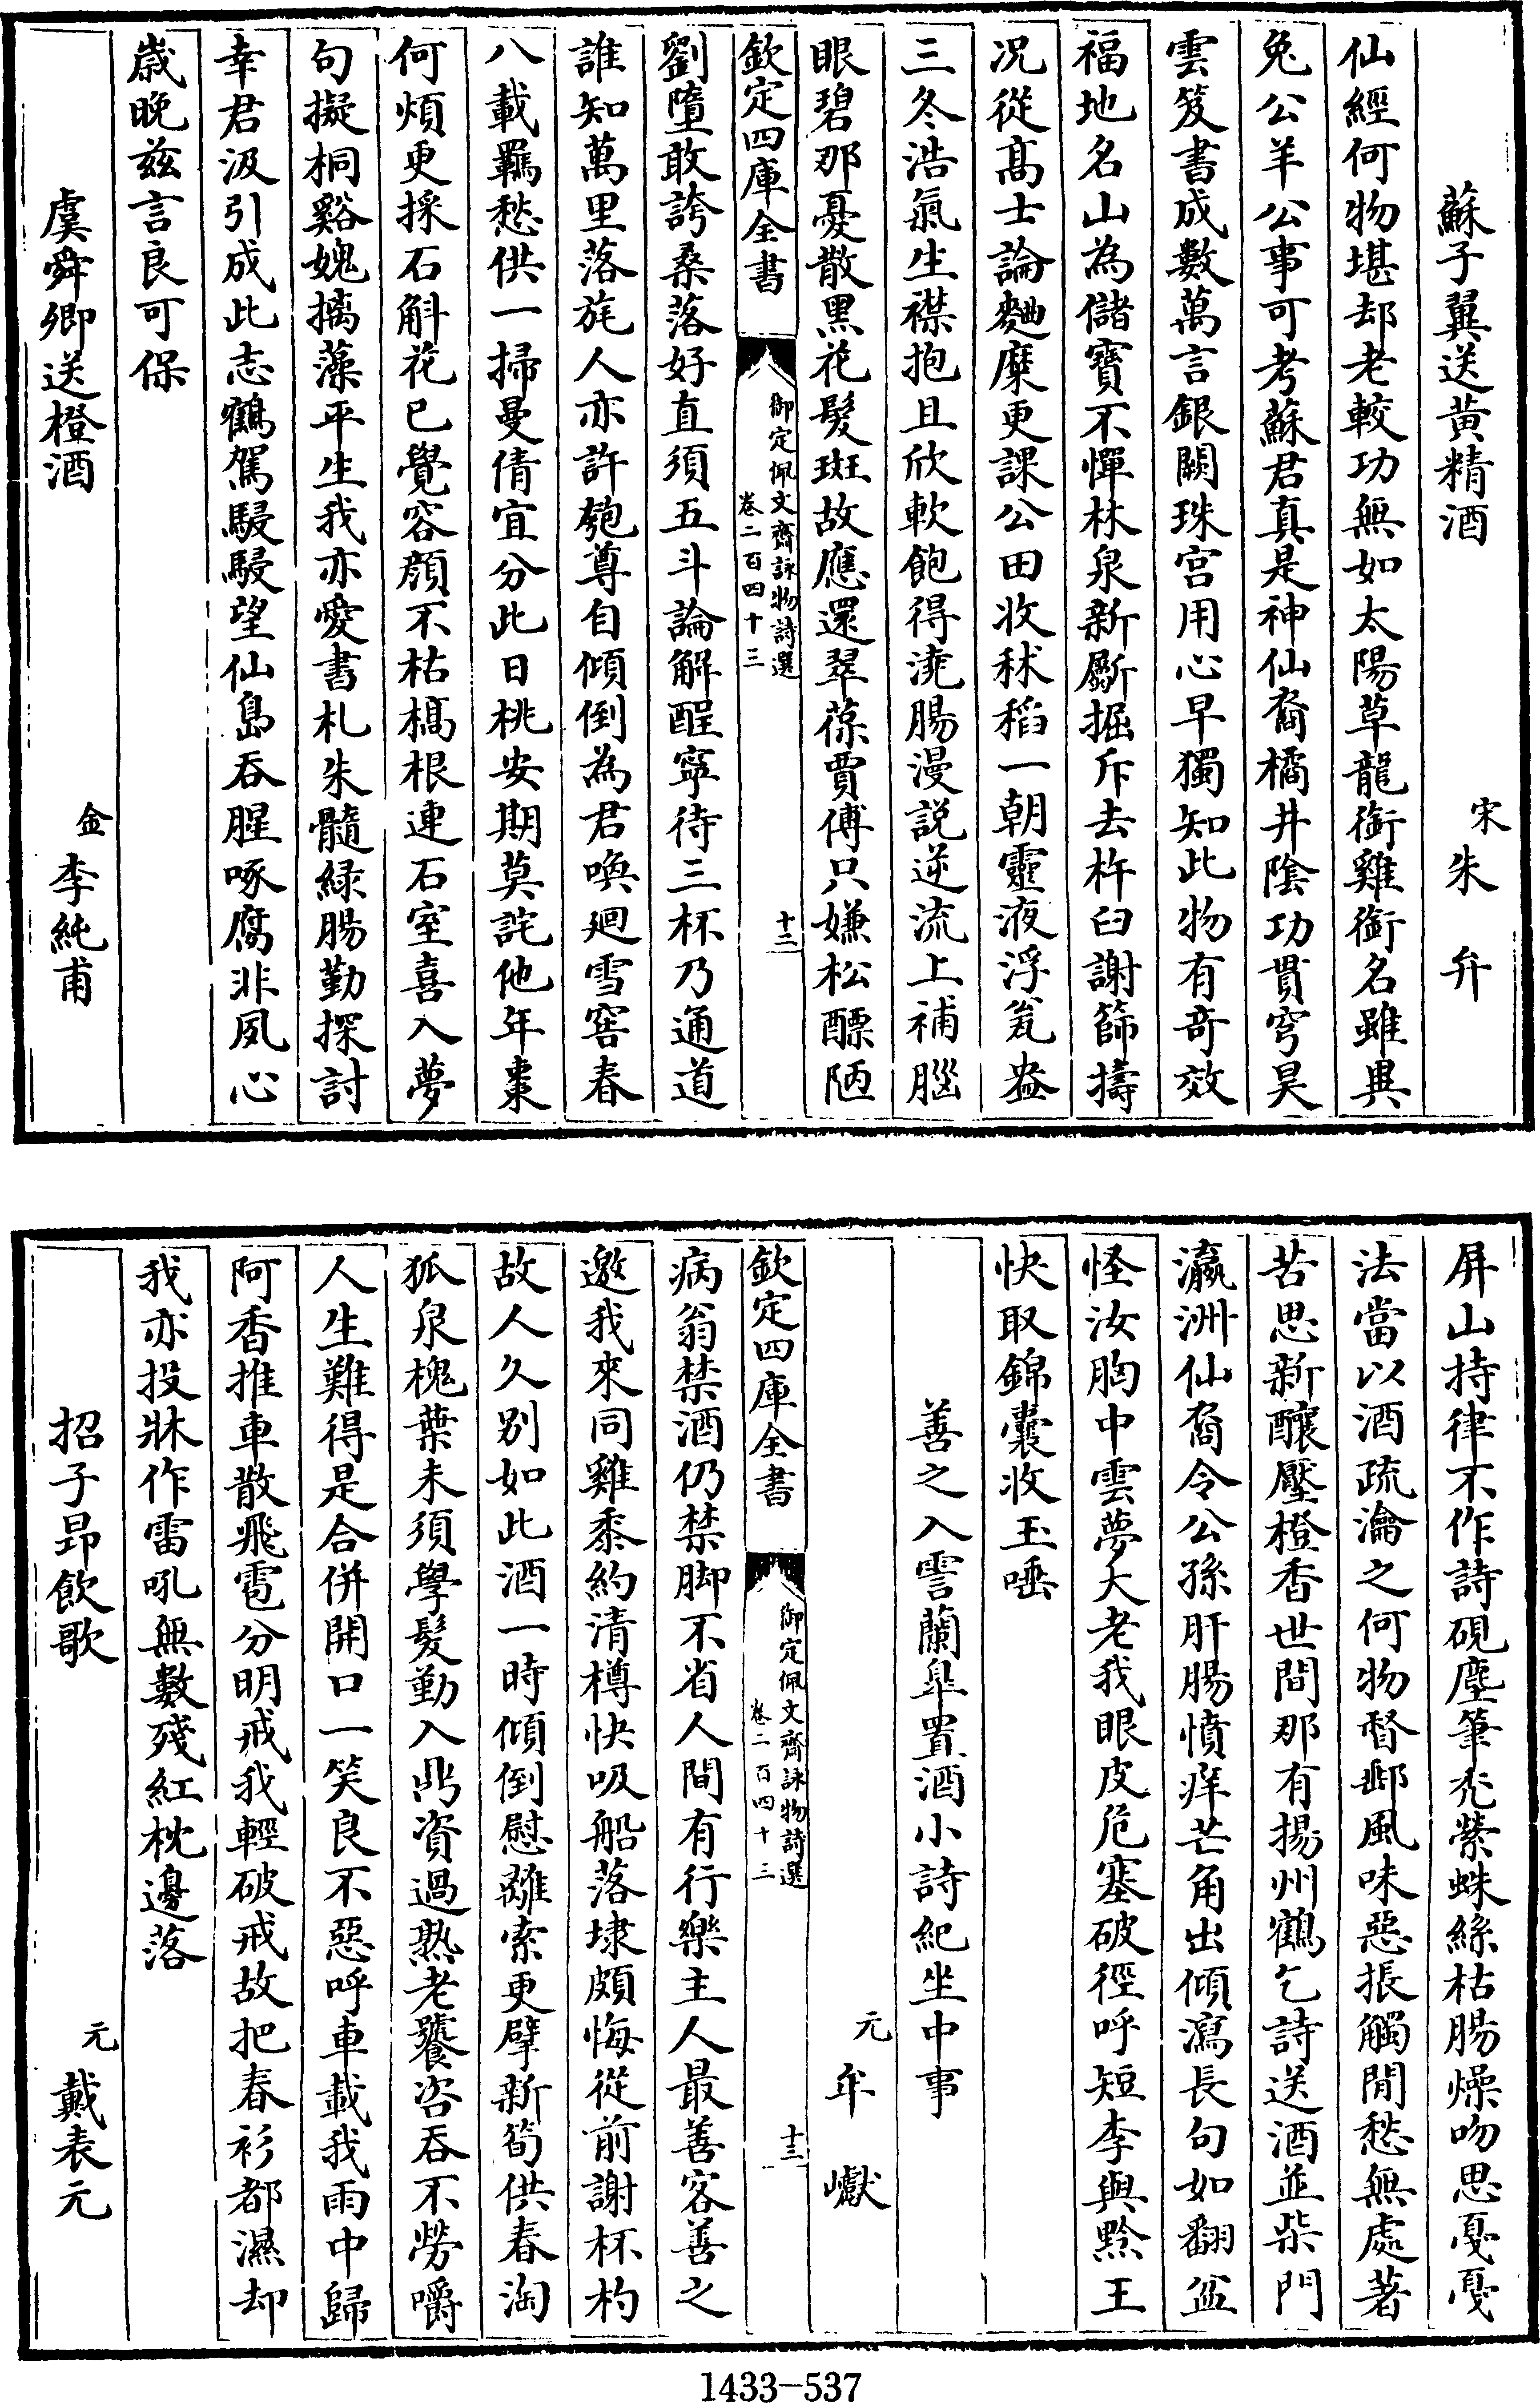 蘇子翼送黃精酒
宋朱弁
仙經何物堪却老較功無如太陽草龍銜雞銜名雖異
兔公羊公事可考蘇君真是神仙裔橘井陰功貫穹昊
雲笈書成數萬言銀闕珠宫用心早獨知此物有奇效
福地名山為儲寳不憚林泉新斸掘斥去杵臼謝篩擣
况從髙士論麯糵更課公田收秫稻一朝靈液浮瓮盎
三冬浩氣生襟抱且欣軟飽得澆腸漫説逆流上補腦
眼碧那憂散黑花髮斑故應還翠葆賈傅只嫌松醪陋
欽定四庫全書
御定佩文齋詠物詩選
卷二百四十三
十二
劉墮敢誇桑落好直須五斗論解酲寜待三杯乃通道
誰知萬里落旄人亦許匏尊自傾倒為君喚廻雪窖春
八載羈愁供一掃曼倩宜分此日桃安期莫詫他年棗
何煩更採石斛花已覺容顔不枯槁根連石室喜入夢
句擬桐谿媿摛藻平生我亦愛書札朱髓緑腸勤探討
幸君汲引成此志鶴駕駸駸望仙島吞腥啄腐非夙心
嵗晚兹言良可保
虞舜卿送橙酒
金李純甫
屏山持律不作詩硯塵筆禿縈蛛絲枯腸燥吻思戞戞
法當以酒疏瀹之何物督郵風味惡掁觸閒愁無處著
苦思新釀壓橙香世間那有揚州鶴乞詩送酒並柴門
瀛洲仙裔令公孫肝腸憤痒芒角出傾瀉長句如翻盆
怪汝胸中雲夢大老我眼皮危塞破徑呼短李與黔王
快取錦囊收玉唾
善之入雪蘭臯置酒小詩紀坐中事
元牟巘
欽定四庫全書
御定佩文齋詠物詩選
卷二百四十三
十三
病翁禁酒仍禁脚不省人間有行樂主人最善客善之
邀我來同雞黍約清樽快吸船落埭頗悔從前謝杯杓
故人久别如此酒一時傾倒慰離索更擘新筍供春淘
狐泉槐葉未須學髮勤入鼎資過熟老饕咨吞不勞嚼
人生難得是合併開口一笑良不惡呼車載我雨中歸
阿香推車散飛雹分明戒我輕破戒故把春衫都濕却
我亦投牀作雷吼無數殘紅枕邊落
招子昂飲歌
元戴表元
1433-537